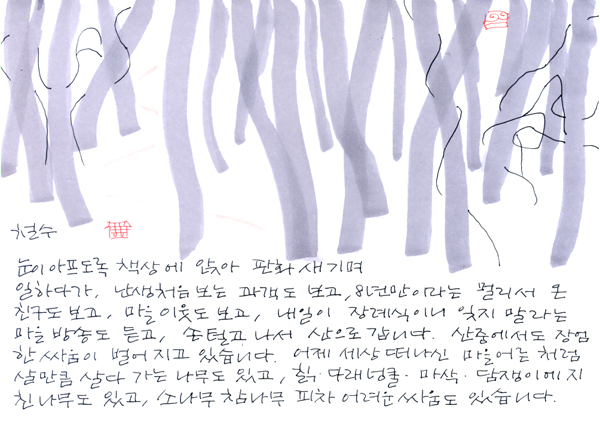 철수
눈이 아프도록 책상에 앉아 판화 새기며
일하다가, 난생처음 보는 과객도 보고, 8년만이라는 멀리서 온
친구도 보고, 마을 이웃도 보고, 내일이 장례식이니 잊지 말라는
마을 방송도 듣고, 손 털고 나서 산으로 갑니다. 산중에서도 장엄
한 싸움이 벌어지고 있습니다. 어제 세상 떠나신 마을 어른처럼
살만큼 살다 가는 나무도 있고, 칡·다래넝쿨·마삭·담쟁이에 지
친 나무도 있고, 소나무 참나무 피차 어려운 싸움도 있습니다.